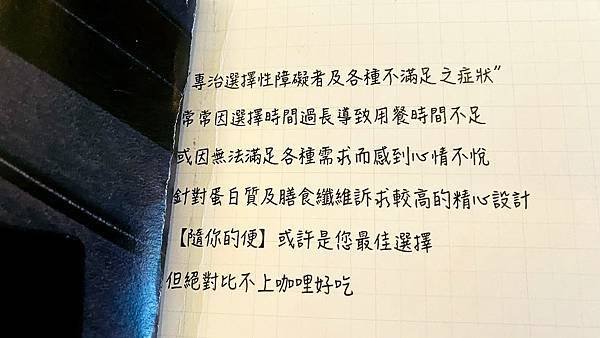 "專治選擇性障礙者及各種不滿足之症狀"
常常因選擇時間過長導致用餐時間不足
或因無法滿足各種需求而感到心情不悅
針對蛋白質及膳食纖維訴求較高的精心設計
【隨你的便】或許是您最佳選擇
但絕對比不上咖哩好吃